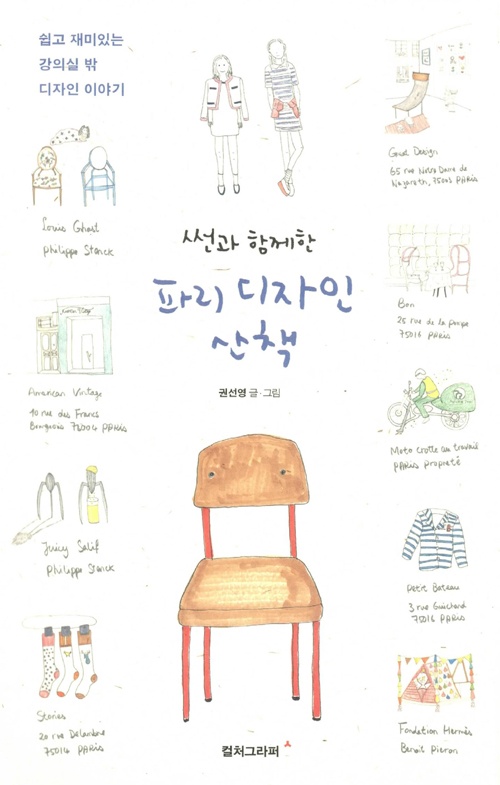 쉽고 재미있는
강의실 밖
디자인 이야기
Louis Ghost
philippe Starck
American Vintage
10 rue des Francs
Bourgeois 75004 PARIS
Juicy Salif
Philippe Starck
Stories
20 rue Delambre
75014 PARIS
썬과 함께한
파리 디자인
산책
권선영 글·그림
컬처그라퍼
Good Design
65 rue Notre Dame de
Nazareth, 75003 PARIS
Bon
25 rue de la pompe
75016 PARIS
Moto crotte au travail
PARIS propreté
Petit Bateau
3 rue Guichard
75016 PARIS
Fondation Hermès
Benoît Pieron